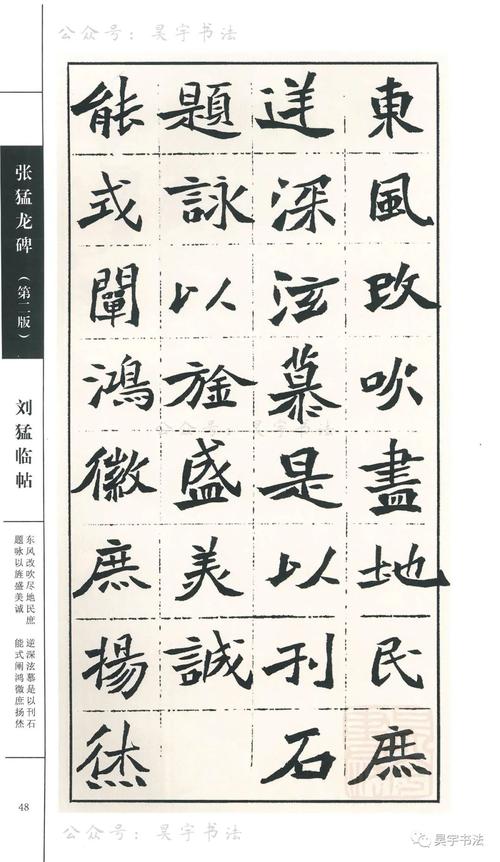 公众号：昊宇书法
東風改吹盡地民庶
逆深泫慕是以刊石
題詠以旌盛美誠
能式闡鴻徽庶揚烋
公众号：昊宇书法
张猛龙碑（第二版）
刘猛临帖
东风改吹尽地民庶 逆深泫慕是以刊石
题咏以旌盛美诚 能式阐鸿微庶扬烋
48
公众号：昊宇书法
昊宇书法